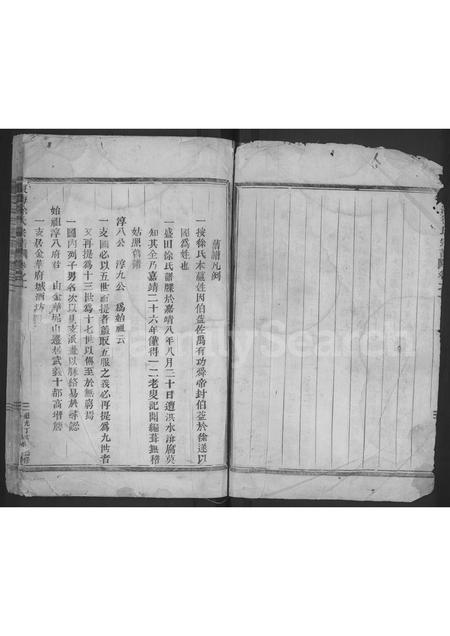 舊譜凡例
一按徐氏本嬴姓因伯益佐禹有功舜帝封伯益於徐遂以
國爲姓也
一盛田徐氏譜牒於嘉靖八年八月二十日遭洪水淹腐莫
知其全乃嘉靖二十六年僅得一二老叟記聞編葺無稽
姑照舊錄
淳八公 淳九公 爲始祖云
一支圖必以五世而提者蓋取五服之義必再提爲九世者
又再提爲十三世爲十七世以傳至於無窮焉
一圖內列子男名次以見支派並以脉絡易於尋認
始祖淳八府君 由金華 山遷居武義十都高增
一支居金華府城酒坊